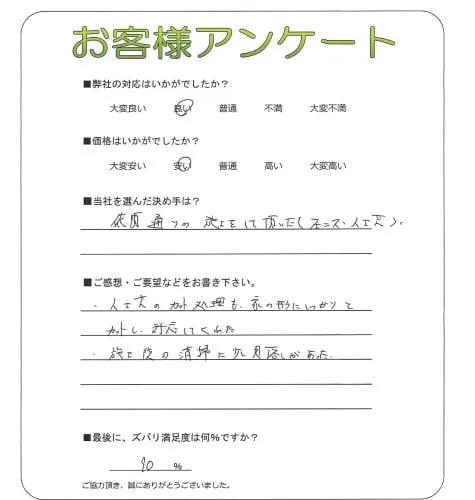 お客様アンケート
■弊社の対応はいかがでしたか?
大変良い 良い 普通 不満 大変不満
■価格はいかがでしたか?
大変安い 安い 普通 高い 大変高い
■当社を選んだ決め手は?
依頼通りの施工をして頂いた(フェンス・人工芝)。
■ご感想・ご要望などをお書き下さい。
・人工芝のカット処理も、家の形にしっかりと
カットし、対応してくれた
・施工後の清掃に少し見落しがあった。
■最後に、ズバリ満足度は何%ですか?
90 %
ご協力頂き、誠にありがとうございました。